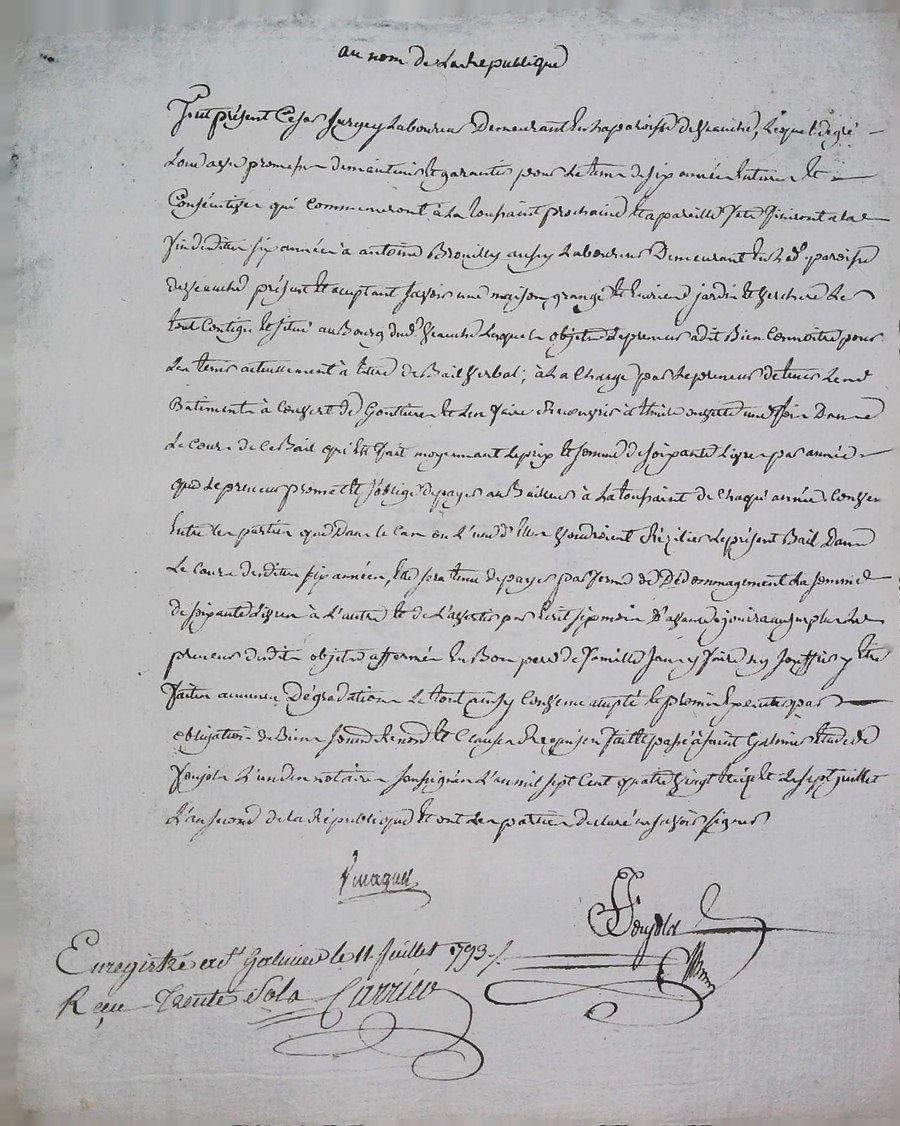 au nom de La Republique
Fut présent Laboureur Demeurant En La paroisse de Veauche, Lequel de gré
Loue avec promesse de maintenir Et garantir pour Le tems de six années futures Et
Consécutives qui Commenceront à La toussaint prochaine Et a pareille fete finiront a la
fin desdites six années à antoine Brouilly aussy Laboureur Demeurant En Lad.e paroisse
de Veauche présent Et acceptant savoir une maison, grange Et Ecurie jardin Et Le
tout Contigu Et situé au Bourg dud.t Veauche Lesquels objets Le preneur a dit Bien Connoitre pour
Les tenir actuellement à titre de Bail Verbal; à La Charge par Le preneur de tenir Lesd.
Batiments à Couvert de Gouttieres Et Les faire Recouvrir à thuile une fois Dans
Le Cours de Ce Bail qui Est fait moyennant Le prix Et somme de soixante Livres par année
que Le preneur promet Et s'oblige de payer au Bailleur à La toussaint de Chaque année Convenu
Entre Les parties que Dans Le Cas ou L'une d'Elles Voudroient Résilier Le présent Bail Dans
Le Cours desdites six années, Elle sera tenue de payer par forme de Dédommagement La somme
de soixante Livres à L'autre Et de L'avertir par Ecrit six mois D'avance jouira au surplus Le
preneur desdits objets affermés En Bon pere de famille sans y faire ny souffrir y Etre
faites aucunes Dégradations Le tout ainsy Convenu accepté Et promis Executer par
obligation de Biens Et Clauses Requises fait Et passé à saint Galmier Etude de
L'un des notaires soussignés L'an mil sept Cent quatre Vingt treize Et Le sept juillet
L'an second de La République Et ont Les parties déclaré ne savoir signer
Enregistré a S.t Galmier le 11 Juillet 1793
Reçu Trente Sols Carrier